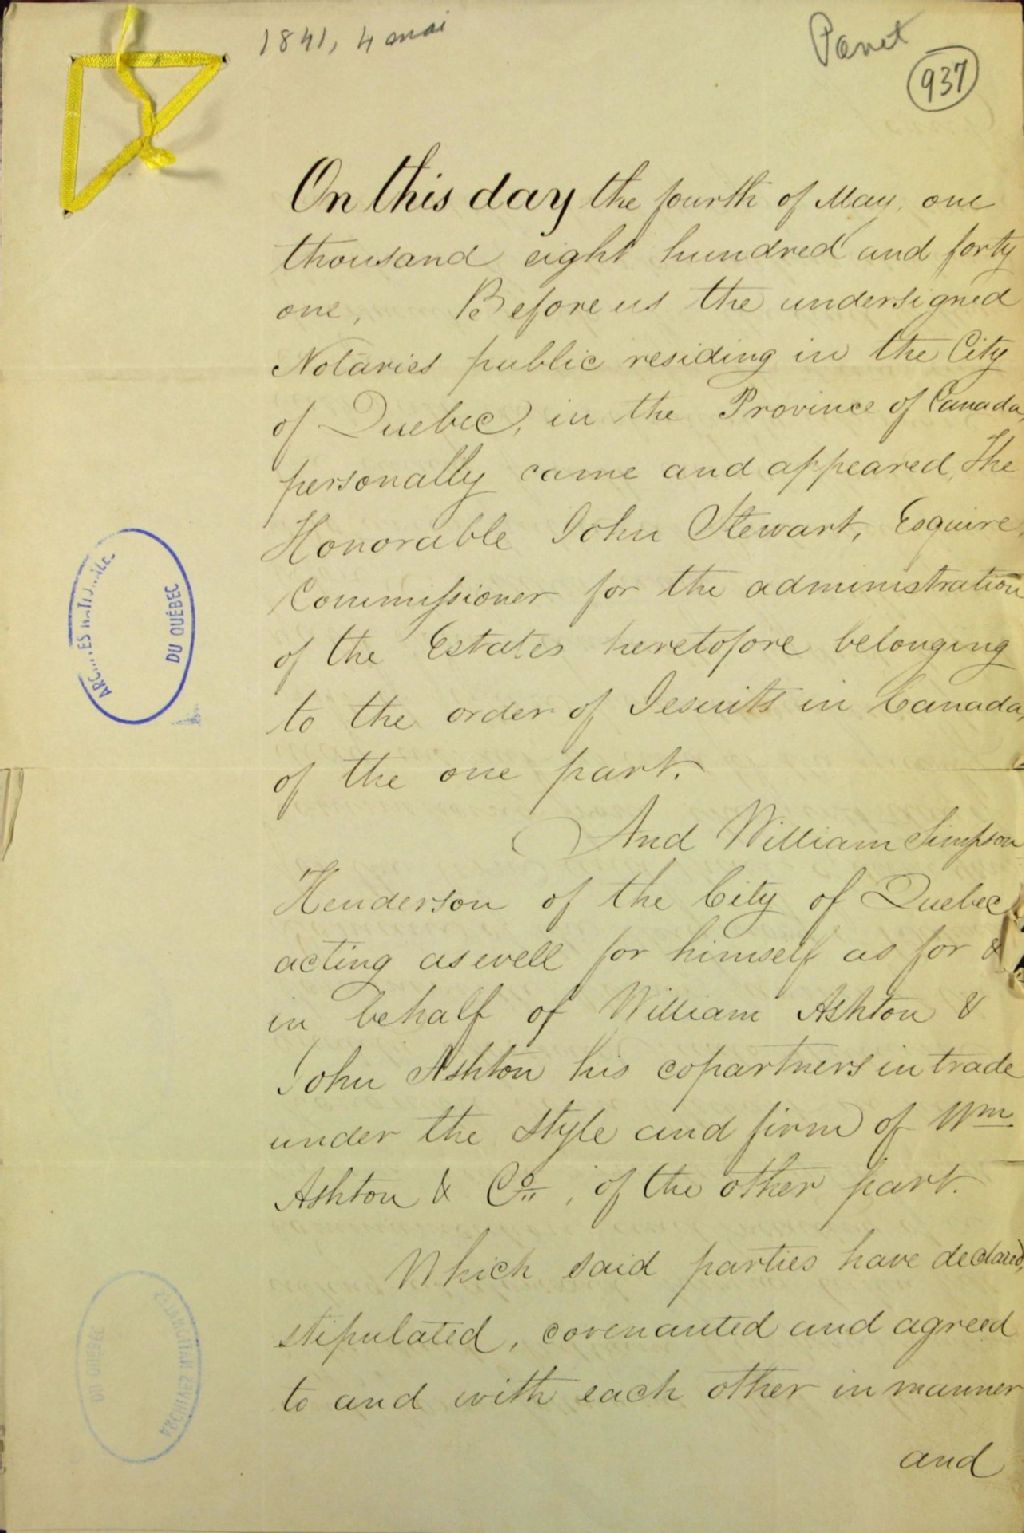 1841, 4 mai
Panet
937
On this day the fourth of May, one
thousand eight hundred and forty
one, Before us the undersigned
Notaries public residing in the City
of Quebec, in the Province of Canada,
personally came and appeared, The
Honorable John Stewart, Esquire,
Commissioner for the administration
of the Estates heretofore belonging
to the order of Jesuits in Canada,
of the one part.
And William Simpson
Henderson of the City of Quebec
acting as well for himself as for &
in behalf of William Ashton &
John Ashton his copartners in trade
under the style and firm of Wm
Ashton & Co., of the other part.
Which said parties have declared,
stipulated, covenanted and agreed
to and with each other in manner
and
DU QUÉBEC
DU QUÉBEC